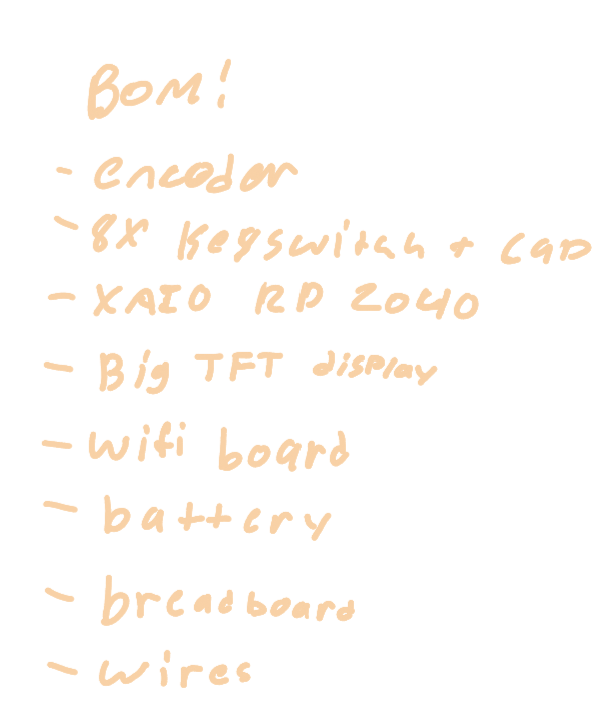 BOM!
- encoder
- 8X Keyswitch + Cap
- XAIO RP 2040
- Big TFT display
- wifi board
- battery
- breadboard
- wires